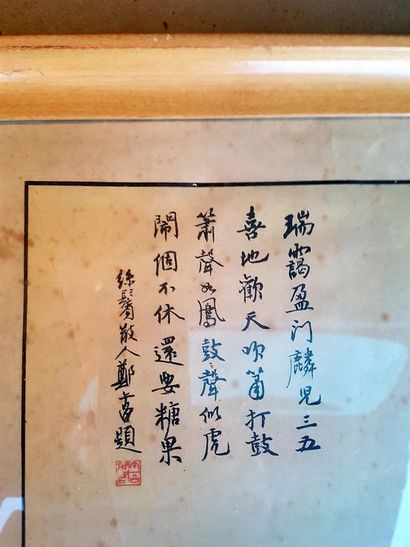 瑞靄盈门麟兒三五
喜地歡天吹簫打鼓
簫聲如鳳鼓聲似虎
鬧個不休還要糖果
綠鬢散人鄭題